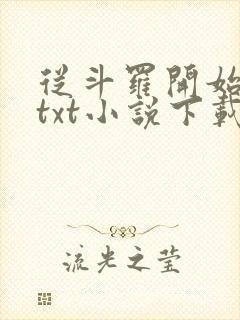 從斗羅開始
txt小說下載
流光之莹